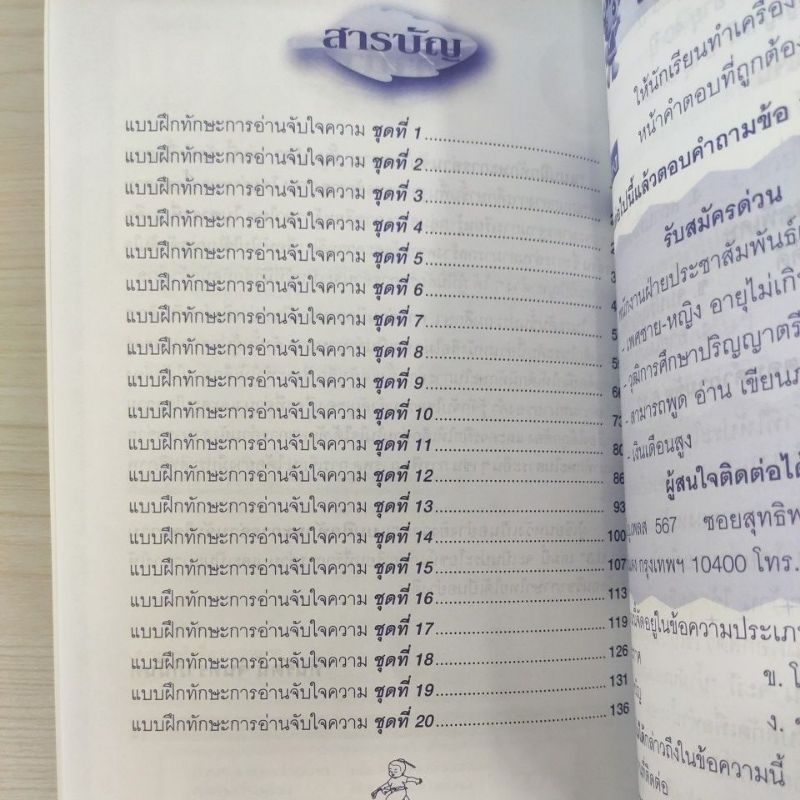 สารบัญ
แบบฝึกทักษะการอ่านจับใจความ ชุดที่ 1
แบบฝึกทักษะการอ่านจับใจความ ชุดที่ 2
แบบฝึกทักษะการอ่านจับใจความ ชุดที่ 3
แบบฝึกทักษะการอ่านจับใจความ ชุดที่ 4
แบบฝึกทักษะการอ่านจับใจความ ชุดที่ 5
แบบฝึกทักษะการอ่านจับใจความ ชุดที่ 6
แบบฝึกทักษะการอ่านจับใจความ ชุดที่ 7
แบบฝึกทักษะการอ่านจับใจความ ชุดที่ 8
แบบฝึกทักษะการอ่านจับใจความ ชุดที่ 9
แบบฝึกทักษะการอ่านจับใจความ ชุดที่ 10 73
แบบฝึกทักษะการอ่านจับใจความ ชุดที่ 11 80
แบบฝึกทักษะการอ่านจับใจความ ชุดที่ 12 86
แบบฝึกทักษะการอ่านจับใจความ ชุดที่ 13 93
แบบฝึกทักษะการอ่านจับใจความ ชุดที่ 14 100
แบบฝึกทักษะการอ่านจับใจความ ชุดที่ 15 107
แบบฝึกทักษะการอ่านจับใจความ ชุดที่ 16 113
แบบฝึกทักษะการอ่านจับใจความ ชุดที่ 17 119
แบบฝึกทักษะการอ่านจับใจความ ชุดที่ 18 126
แบบฝึกทักษะการอ่านจับใจความ ชุดที่ 19 131
แบบฝึกทักษะการอ่านจับใจความ ชุดที่ 20 136
ให้นักเรียนทำเครื่อง
หน้าคำตอบที่ถูกต้อ
ไปนี้แล้วตอบคำถามข้อ
รับสมัครด่วน
พนักงานฝ่ายประชาสัมพันธ์
- เพศชาย-หญิง อายุไม่เกิ
- วุฒิการศึกษาปริญญาตรี
- สามารถพูด อ่าน เขียน
- เงินเดือนสูง
ผู้สนใจติดต่อได้
567 ซอยสุทธิพ
กรุงเทพฯ 10400 โทร.
จัดอยู่ในข้อความประเภ
ข. โ
ง.
ได้กล่าวถึงในข้อความนี้
ติดต่อ